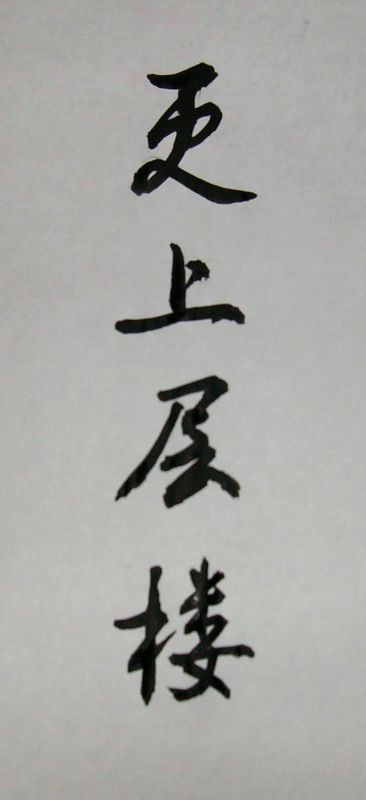 更上层楼